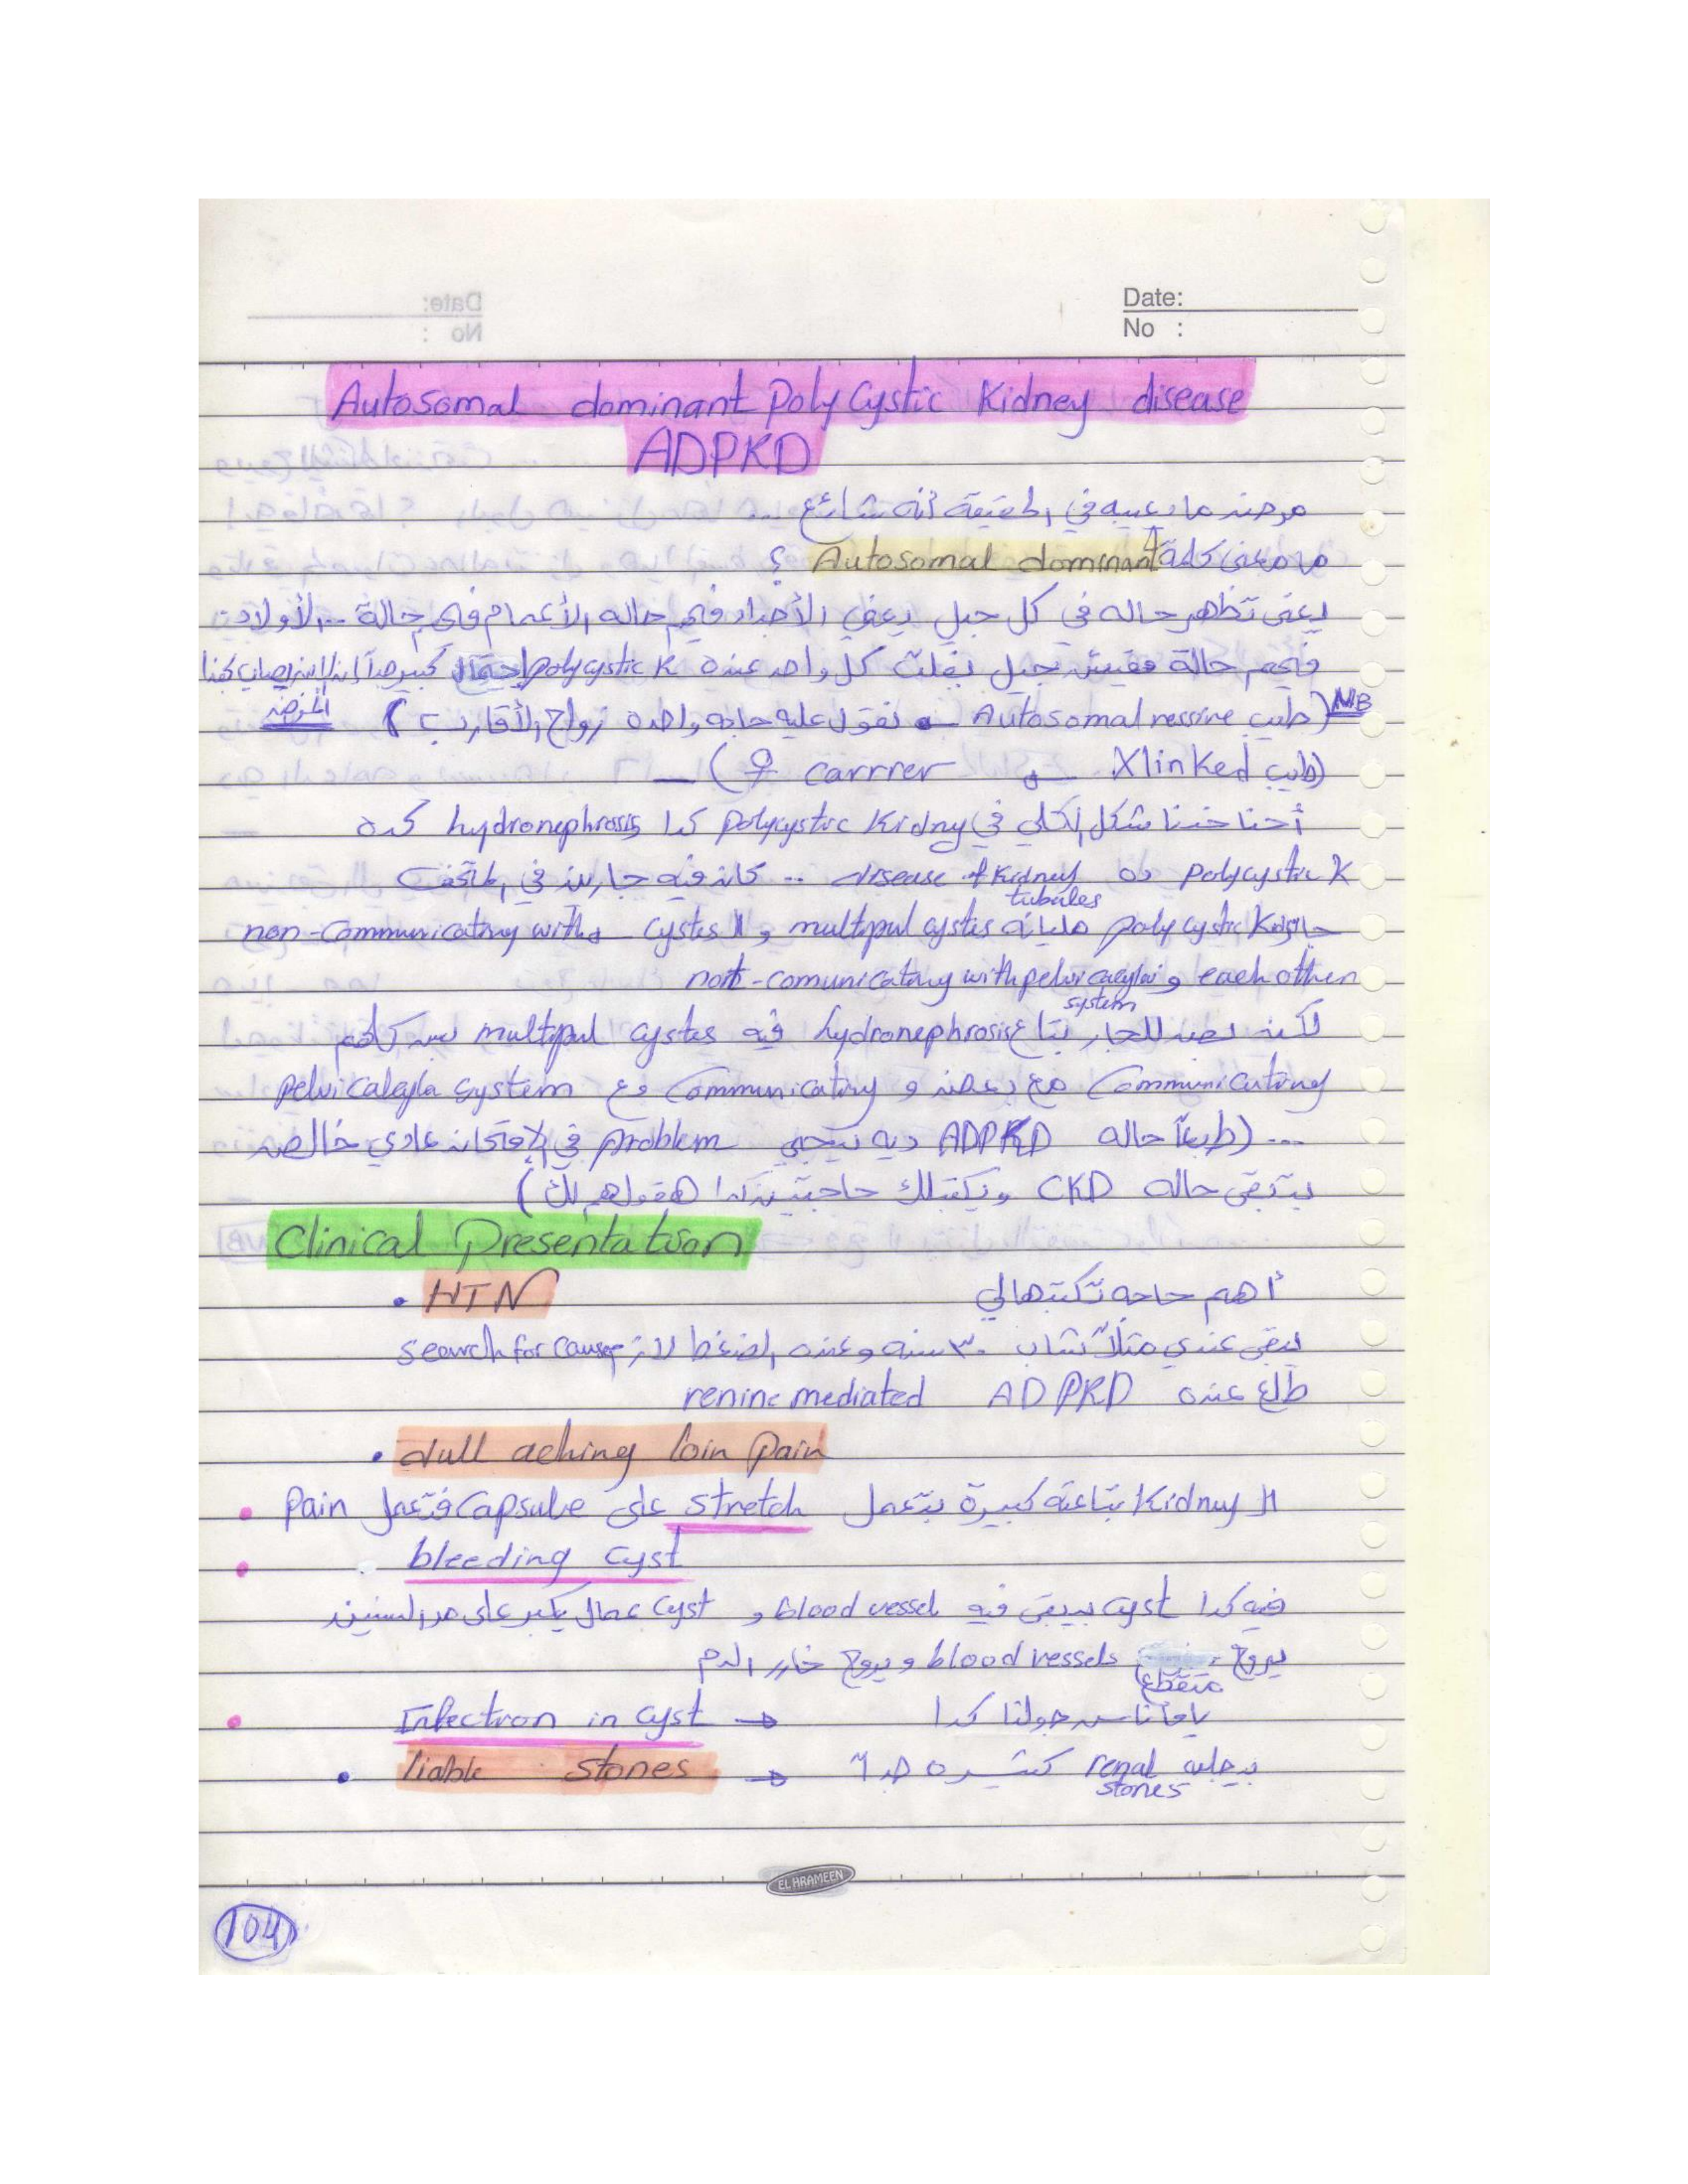 Date:
No :
Autosomal dominant Poly Cystic Kidney disease
ADPKD
مرض ما يعيبه في الحقيقة أنه شائع ...
ما معنى كلمة Autosomal dominant ؟
يعني تظهر حاله في كل جيل يعني الأجداد فيهم حاله الأعمام فيهم حالة .. الأولاد
فيهم حالة مفيش جيل بفلت كل واحد عنده polycystic K احتمال كبير جدا إن ابنه يصاب بهذا
المرض
NB (طيب Autosomal ressive نقول عليه حاجه واحده زواج الأقارب)
(طيب Xlinked carrrer ♀) —
أحنا خدنا شكل الكلي في polycystic Kidny كدا hydronephrosis كده
polycystic K ده disease of Kidney .. كان فيه جارين في المتحف
tubules
جار polycystic K مليانه multipul cystes و ال cystes non-communicatiny with
each other و not-comunicatiny with pelvi caeylai
system
لكن نصد للجار بتاع hydronephrosis فيه multipul cystes بس كلهم
Communicatiny مع بعض و Communicatiny مع pelvicaleyla system
... (طبعاً حاله ADPKD ديه بتيجي problem في الامتحان عادي خالص
بتبقى حاله CKD ويكتبلك حاجتين كدا هقولهم لك)
Clinical Presentation
• HTN أهم حاجه تكتبهالي
يبقى عندي مثلاً شاب ٣٠ سنه وعنده الضغط لازم search for cause
طلع عنده ADPKD renine mediated
• dull aching loin pain
• ال Kidney بتاعته كبيرة بتعمل stretch على capsule فتعمل Pain
• bleeding cyst
فيه كدا cyst بيبقى فيه blood vessel و cyst عمال يكبر على مدر السنين
يروح blood vessels ويروح خارر الدم
متقطع
• Infection in cyst → كدا
• liable stones → بيجليه renal كتيره جدا
stones
EL HARAMEEN
104